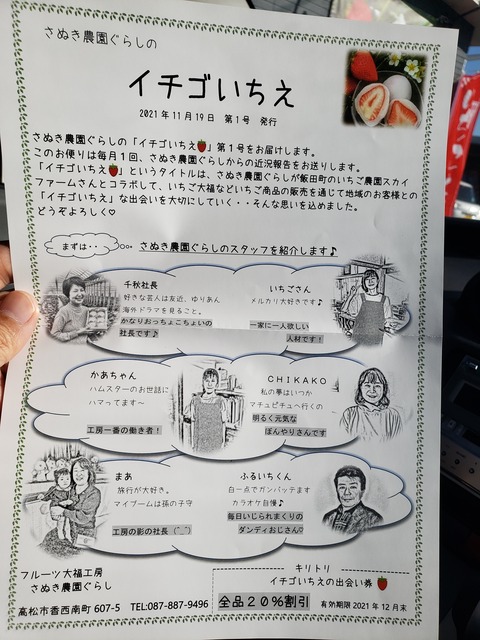 さぬき農園ぐらしの
イチゴいちえ
2021年11月19日　第1号　発行
さぬき農園ぐらしの「イチゴいちえ🍓」第1号をお届けします。
このお便りは毎月1回、さぬき農園ぐらしからの近況報告をお送りします。
「イチゴいちえ🍓」というタイトルは、さぬき農園ぐらしが飯田町のいちご農園スカイ
ファームさんとコラボして、いちご大福などいちご商品の販売を通じて地域のお客様との
「イチゴいちえ」な出会いを大切にしていく・・そんな思いを込めました。
どうぞよろしく♡
まずは・・
さぬき農園ぐらしのスタッフを紹介します♪
千秋社長
好きな芸人は友近、ゆりあん
海外ドラマを見ること。
かなりおっちょこちょいの
社長です♪
いちごさん
メルカリ大好きです♪
一家に一人欲しい
人材です！
かあちゃん
ハムスターのお世話に
ハマってます～
工房一番の働き者！
CHIKAKO
私の夢はいつか
マチュピチュへ行くの
明るく元気な
ぼんやりさんです
まあ
旅行が大好き。
マイブームは孫の子守
工房の影の社長（^_^）
ふるいちくん
白一点でガンバッテます
カラオケ自慢♪
毎日いじられまくりの
ダンディおじさん♡
フルーツ大福工房
さぬき農園ぐらし
高松市香西南町607-5　TEL:087-887-9496
キリトリ
イチゴいちえの出会い券🍓
全品２０％割引　有効期限2021年12月末